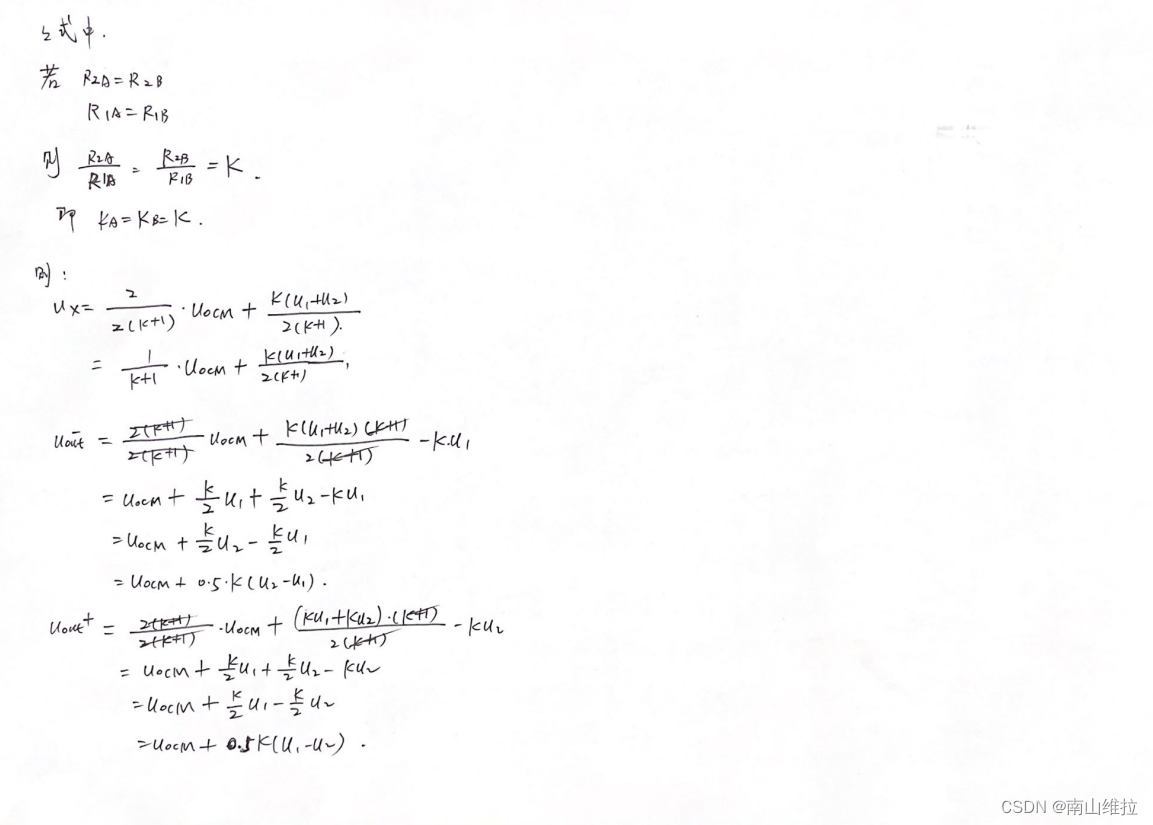 上式中.
若 R2A=R2B
R1A=R1B
则 R2A/R1A = R2B/R1B = K.
即 KA=KB=K.
则:
Ux= 2/2(K+1) · UOCM + K(U1+U2)/2(K+1).
= 1/K+1 · UOCM + K(U1+U2)/2(K+1),
Uout⁻ = 2(K+1)/2(K+1) UOCM + K(U1+U2)(K+1)/2(K+1) - KU1
= UOCM + K/2 U1 + K/2 U2 - KU1
= UOCM + K/2 U2 - K/2 U1
= UOCM + 0.5·K(U2-U1).
Uout⁺ = 2(K+1)/2(K+1) · UOCM + (KU1+KU2)·(K+1)/2(K+1) - KU2
= UOCM + K/2 U1 + K/2 U2 - KU2
= UOCM + K/2 U1 - K/2 U2
= UOCM + 0.5K(U1-U2).
CSDN @南山维拉